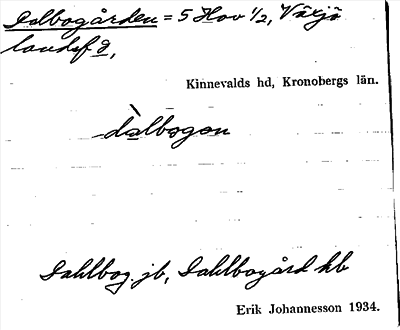 Dalbogården = 5 Hov 1/2, Växjö
landsf g,
Kinnevalds hd, Kronobergs län.
dàlbogən
Dahlbog. jb, Dahlbogård hb
Erik Johannesson 1934.